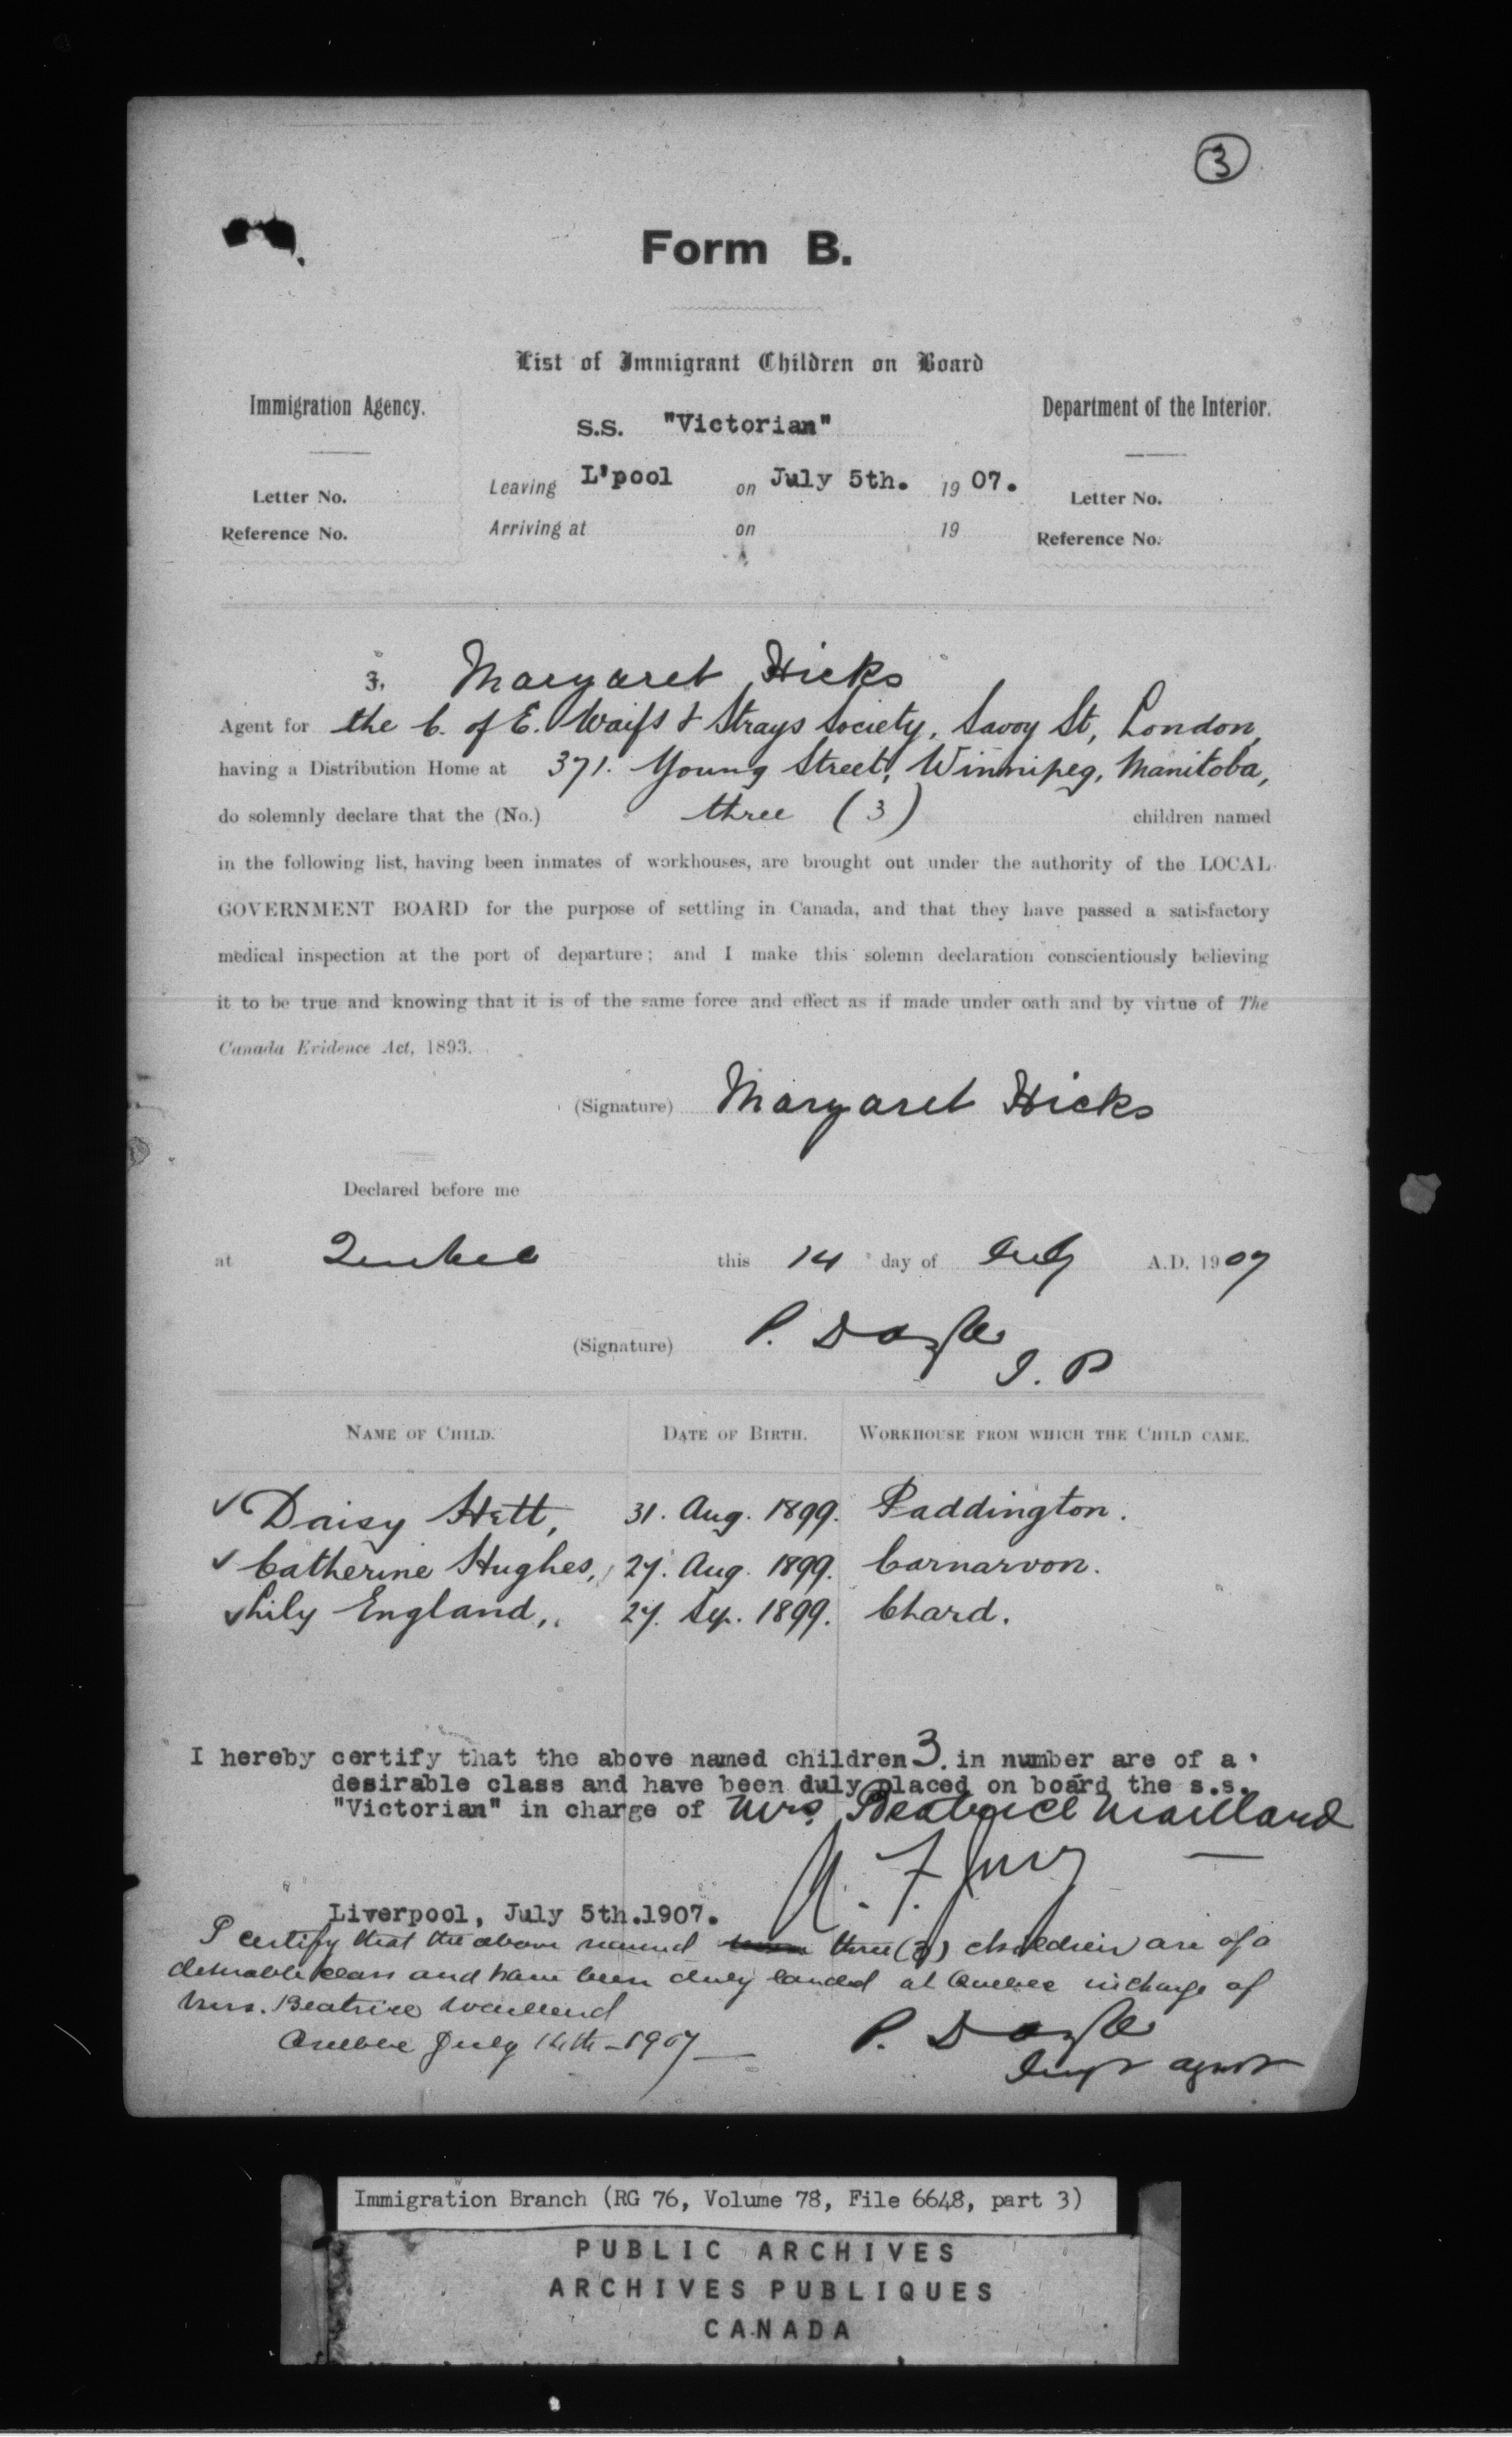 3
Form B.
List of Immigrant Children on Board
Immigration Agency.
Department of the Interior.
S.S. "Victorian"
Leaving L'pool on July 5th. 1907.
Letter No.
Letter No.
Arriving at on 19
Reference No.
Reference No.
I, Margaret Hicks
Agent for the C. of E. Waifs & Strays Society, Savoy St, London,
having a Distribution Home at 371. Young Street, Winnipeg, Manitoba,
do solemnly declare that the (No.) three (3) children named
in the following list, having been inmates of workhouses, are brought out under the authority of the LOCAL
GOVERNMENT BOARD for the purpose of settling in Canada, and that they have passed a satisfactory
medical inspection at the port of departure; and I make this solemn declaration conscientiously believing
it to be true and knowing that it is of the same force and effect as if made under oath and by virtue of The
Canada Evidence Act, 1893.
(Signature) Margaret Hicks
Declared before me
at Quebec this 14 day of July A.D. 1907
(Signature) P. Doyle
J. P
NAME OF CHILD. DATE OF BIRTH. WORKHOUSE FROM WHICH THE CHILD CAME.
✓ Daisy Hett, 31. Aug. 1899. Paddington.
✓ Catherine Hughes, 27. Aug. 1899. Carnarvon.
✓ Lily England, 27. Sep. 1899. Chard.
I hereby certify that the above named children 3. in number are of a
desirable class and have been duly placed on board the s.s.
"Victorian" in charge of Mrs. Beatrice Maillard
Liverpool, July 5th.1907.
I certify that the above named three (3) children are of a
desirable class and have been duly landed at Quebec in charge of
Mrs. Beatrice
Quebec July 14th - 1907
P. Doyle
agent
Immigration Branch (RG 76, Volume 78, File 6648, part 3)
PUBLIC ARCHIVES
ARCHIVES PUBLIQUES
CANADA